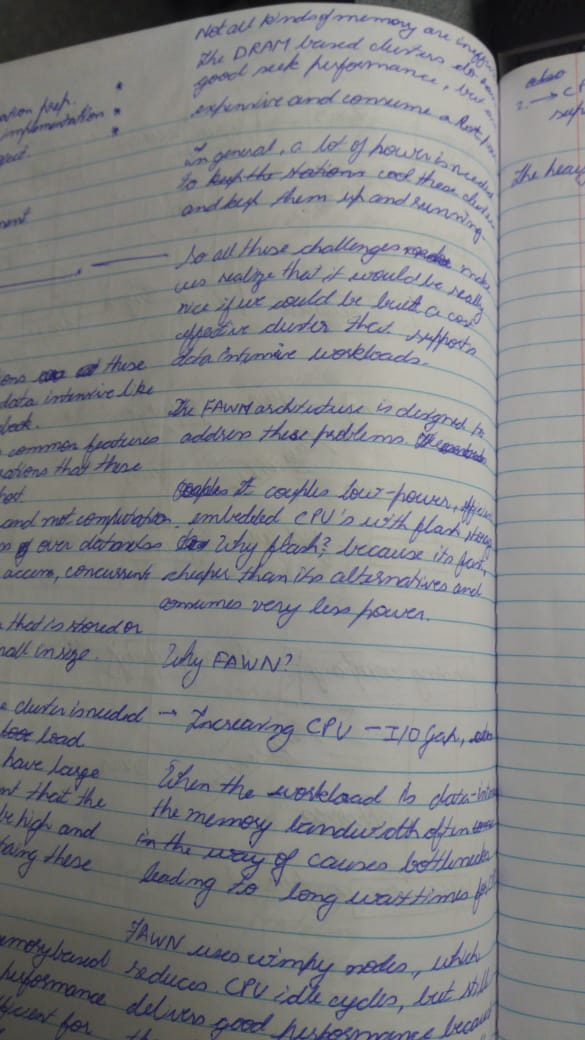 ation prep.
implementation
ject.
ment
ions these
data intensive like
book.
common features
ations that these
host
and not computation
over datasets
access, concurrent
that is stored or
mall in size.
cluster is needed
load.
have large
nt that the
be high and
these
emory based
performance
fficient for
Not all kinds of memory are ineffi
The DRAM based clusters do
good seek performance, but
expensive and consume a lot
In general, a lot of power is needed
to keep the stations cool these cluster
and keep them up and running.
So all these challenges make
us realize that it would be really
nice if we could be built a cost
effective cluster that supports
data intensive workloads.
The FAWN architecture is designed to
address these problems.
Couples It couples low-power, effici
embedded CPU's with flash storag
Why flash? because its fast,
cheaper than its alternatives and
consumes very less power.
Why FAWN?
→ Increasing CPU - I/O Gap,
When the workload is data-in
the memory bandwidth often
in the way of causes bottlenecks
leading to long wait times for
FAWN uses wimpy nodes, which
reduces CPU idle cycles, but still
delivers good performance becaus
also
? → CP
sup
The heav